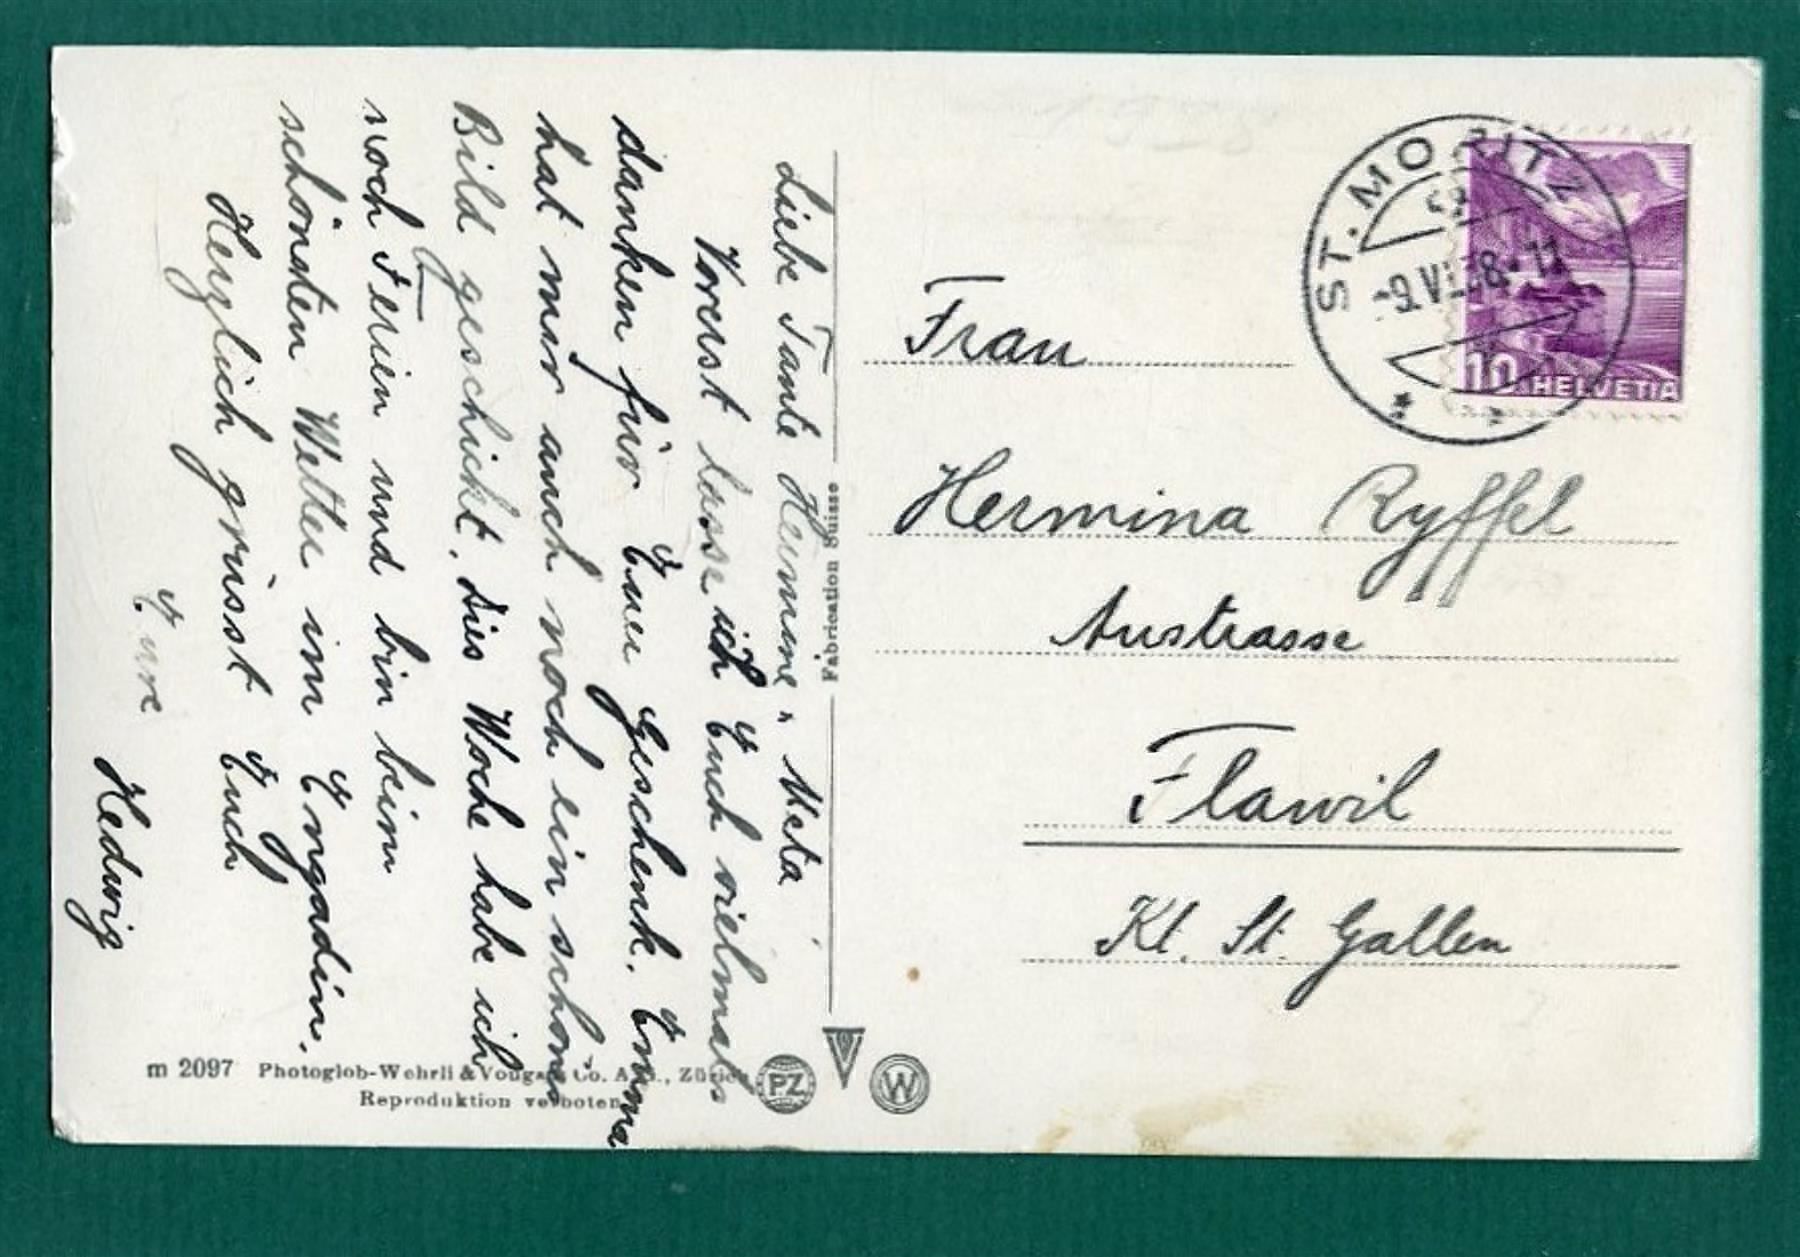 Liebe Tante Hermine u. Meta
Vorerst lasse ich Euch vielmals
danken für Euer Geschenk. Emma
hat mir auch noch ein schönes
Bild geschickt. Dies Woche habe ich
noch Ferien und bin beim
schönsten Wetter im Engadin.
Herzlich grüsst Euch
Eure
Hedwig
Fabrication Suisse
ST. MORITZ
-9.VI
10 HELVETIA
Frau
Hermina Ryffel
Austrasse
Flawil
Kt. St. Gallen
m 2097 Photoglob-Wehrli & Vouga & Co. A.G., Zürich
Reproduktion verboten
PZ
V
W